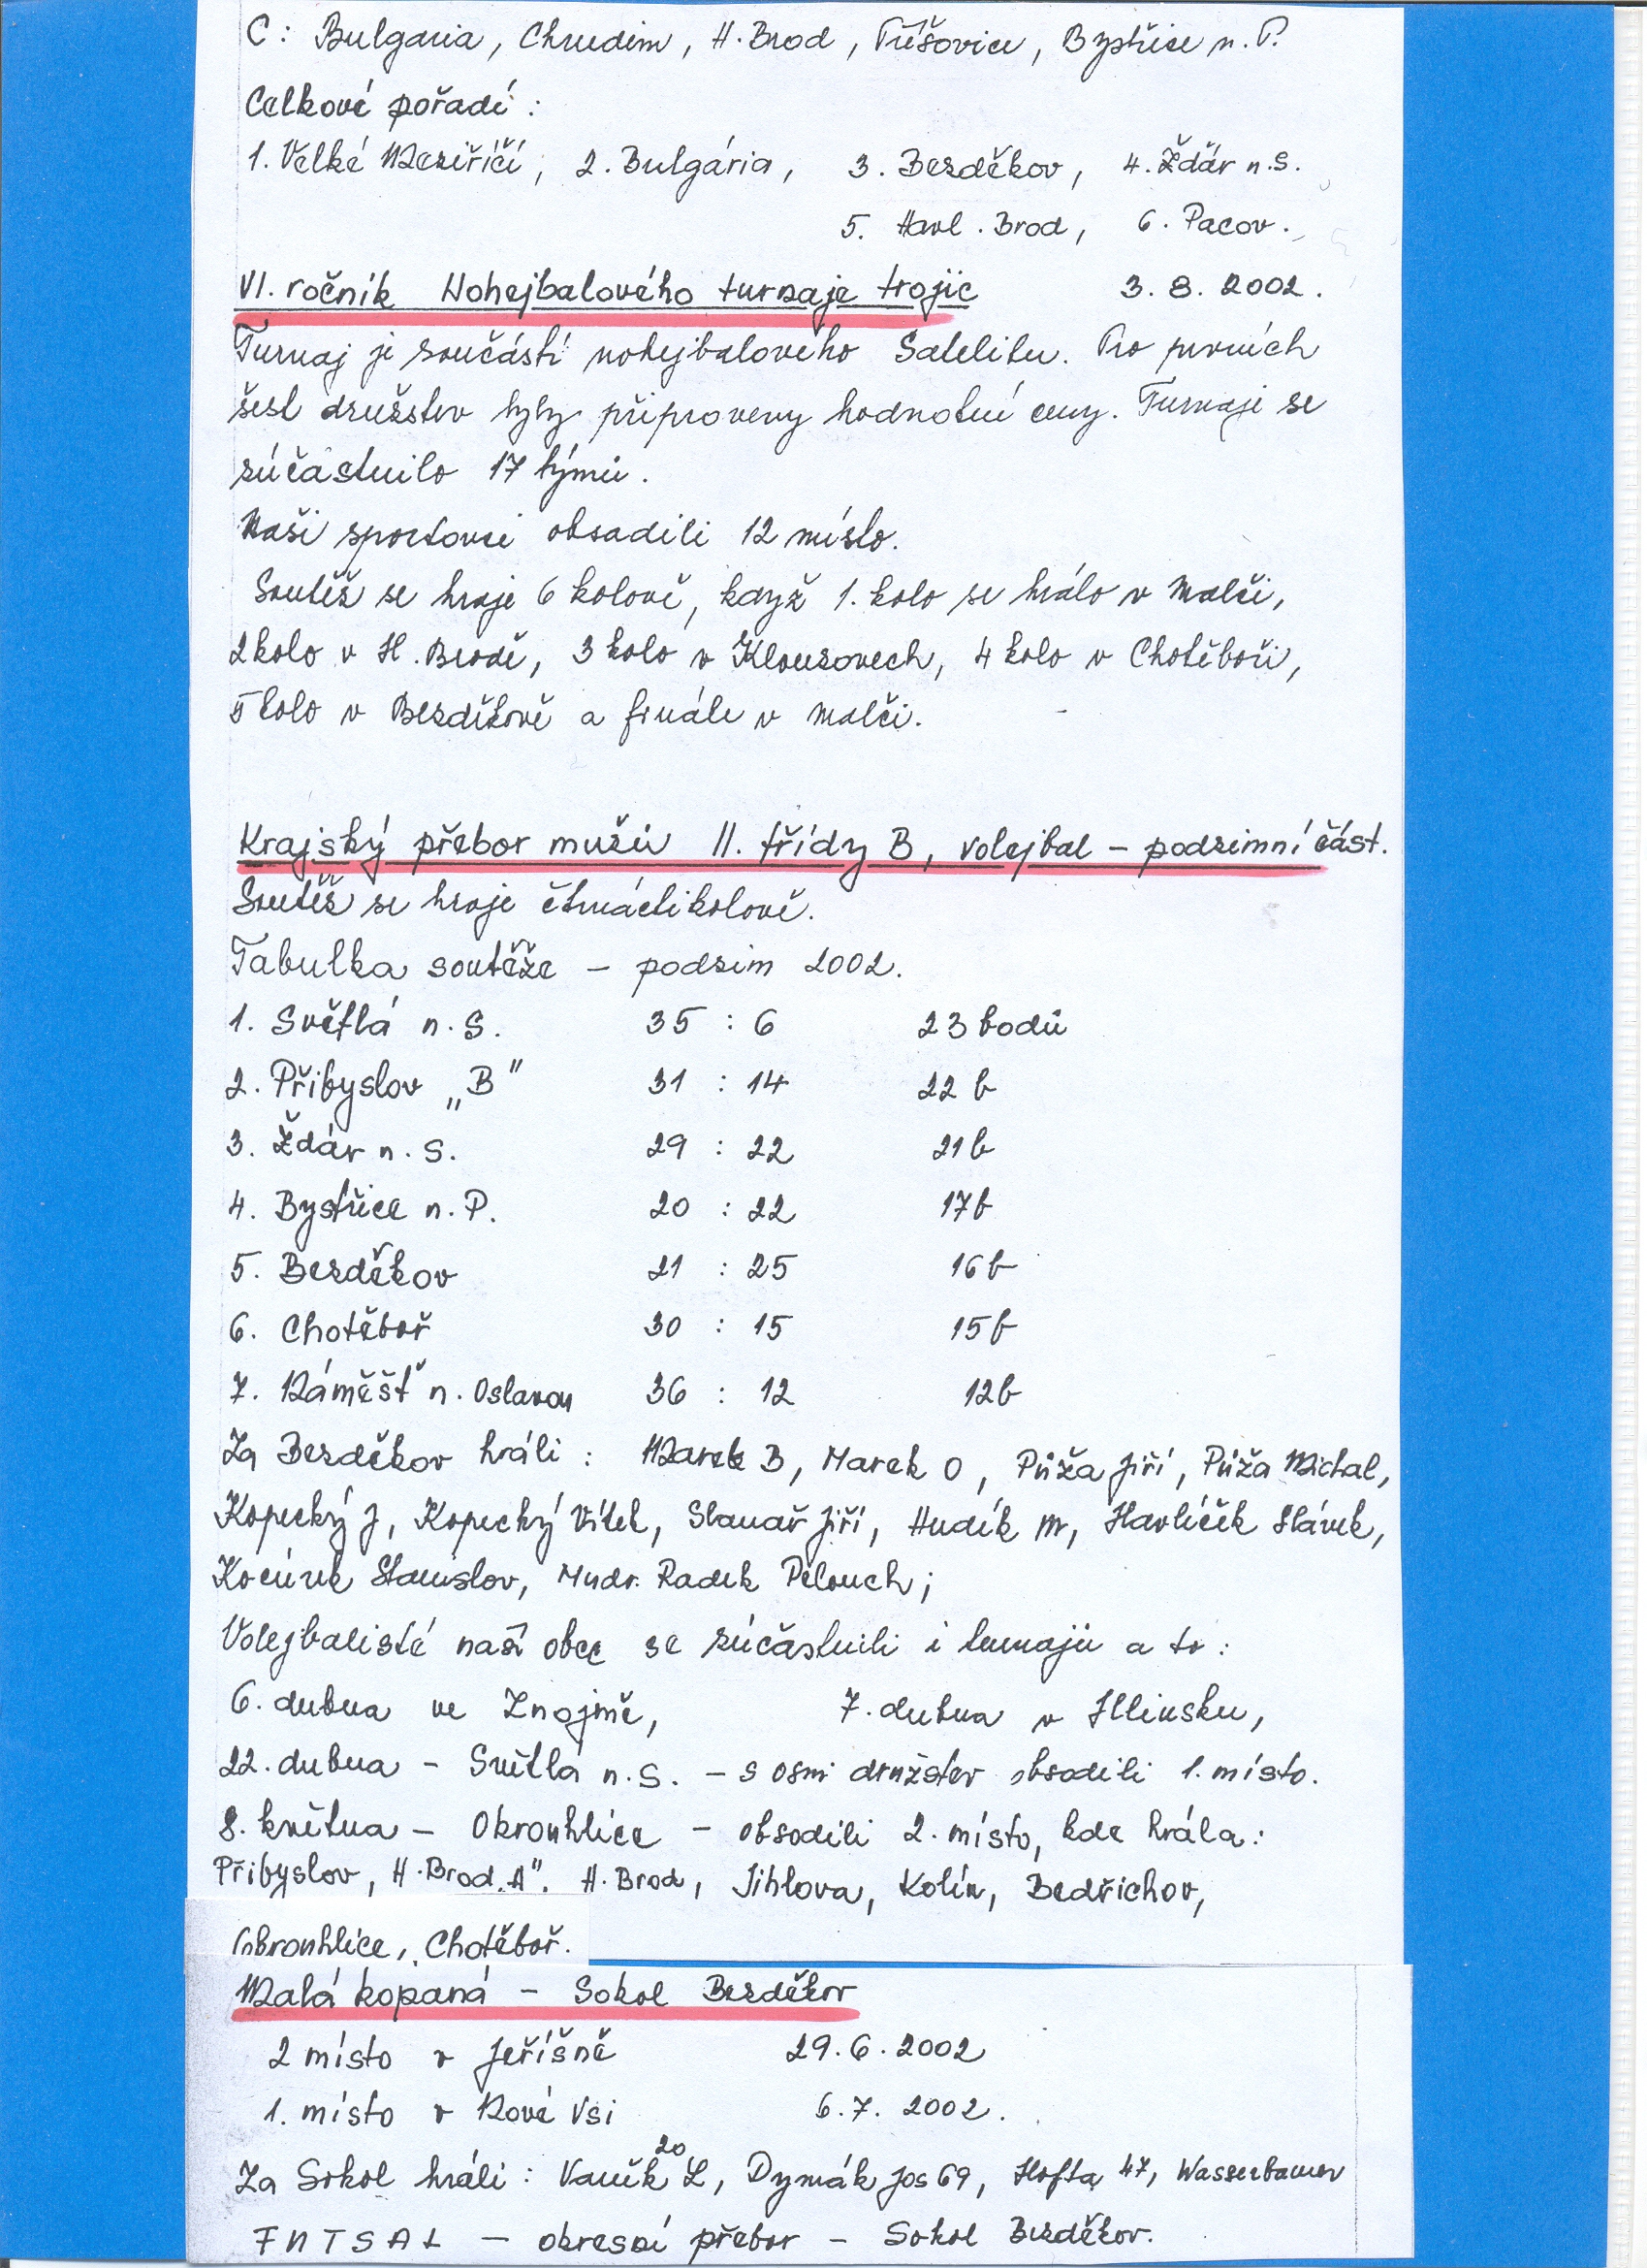 C: Bulgaria, Chrudim, H. Brod, Těšovice, Bystřice n. P.
Celkové pořadí:
1. Velké Meziříčí, 2. Bulgária, 3. Bezděkov, 4. Ždár n.S.
5. Havl. Brod, 6. Pacov.
VI. ročník Nohejbalového turnaje trojic 3. 8. 2002.
Turnaj je součástí nohejbalového Satelitu. Pro prvních
šest družstev byly připraveny hodnotní ceny. Turnaje se
zúčástnilo 17 týmů.
Naši sportovci obsadili 12 místo.
Soutěž se hraje 6 kolově, když 1. kolo se hrálo v Malči,
2 kolo v H. Brodě, 3 kolo v Klouzovech, 4 kolo v Chotěboři,
5 kolo v Bezděkově a finále v Malči.
Krajský přebor mužů II. třídy B, volejbal – podzimní část.
Soutěž se hraje čtrnáctikolově.
Tabulka soutěže – podzim 2002.
1. Světlá n. S. 35 : 6 23 bodů
2. Přibyslov „B" 31 : 14 22 b
3. Ždár n. S. 29 : 22 21 b
4. Bystřice n. P. 20 : 22 17 b
5. Bezděkov 21 : 25 16 b
6. Chotěboř 30 : 15 15 b
7. Náměšť n. Oslavou 36 : 12 12 b
Za Bezděkov hráli : Marek B, Marek O, Půža Jiří, Půža Michal,
Kopecký J, Kopecký Vítek, Slanař Jiří, Hudík M, Havlíček Slávek,
Kocúrek Stanislov, Mudr. Radek Pelouch;
Volejbalisté naší obce se zúčastnili i turnajů a to :
6. dubna ve Znojmě, 7. dubna v Hlinsku,
22. dubna – Světlá n. S. – s osmi družstev obsadili 1. místo.
8. května – Okrouhlice – obsodili 2. místo, kde hrála:
Přibyslov, H. Brod „A". H. Brod, Jihlova, Kolín, Bedřichov,
Okrouhlice, Chotěboř.
Malá kopaná – Sokol Bezděkov
2 místo v Jeříšně 29. 6. 2002
1. místo v Nové Vsi 6. 7. 2002.
Za Sokol hráli : Vaněk L 20, Dymák Jos 69, Hofta 47, Wasserbauer
FUTSAL – okresní přebor – Sokol Bezděkov.